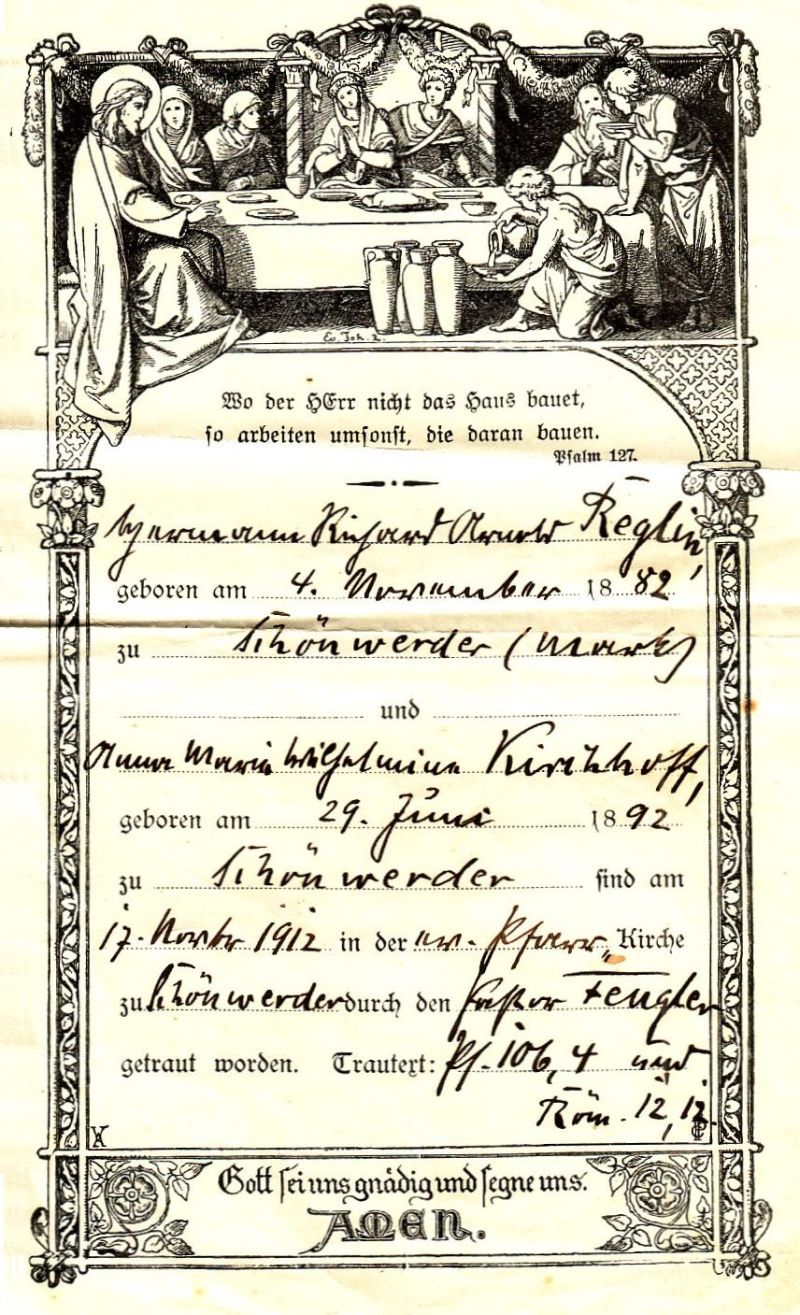 Ev. Joh. 2.
Wo der HErr nicht das Haus bauet,
so arbeiten umsonst, die daran bauen.
Psalm 127.
Hermann Richard Arnold Reglin,
geboren am 4. November 1882
zu Schönwerder (Mark)
und
Anna Marie Wilhelmine Kirchhoff,
geboren am 29. Juni 1892
zu Schönwerder sind am
17. Novbr 1912 in der ev. Pfarr-Kirche
zu Schönwerder durch den Pastor Fengler
getraut worden. Trautext: Ps. 106, 4 und
Röm. 12, 12.
Gott sei uns gnädig und segne uns.
AMEN.